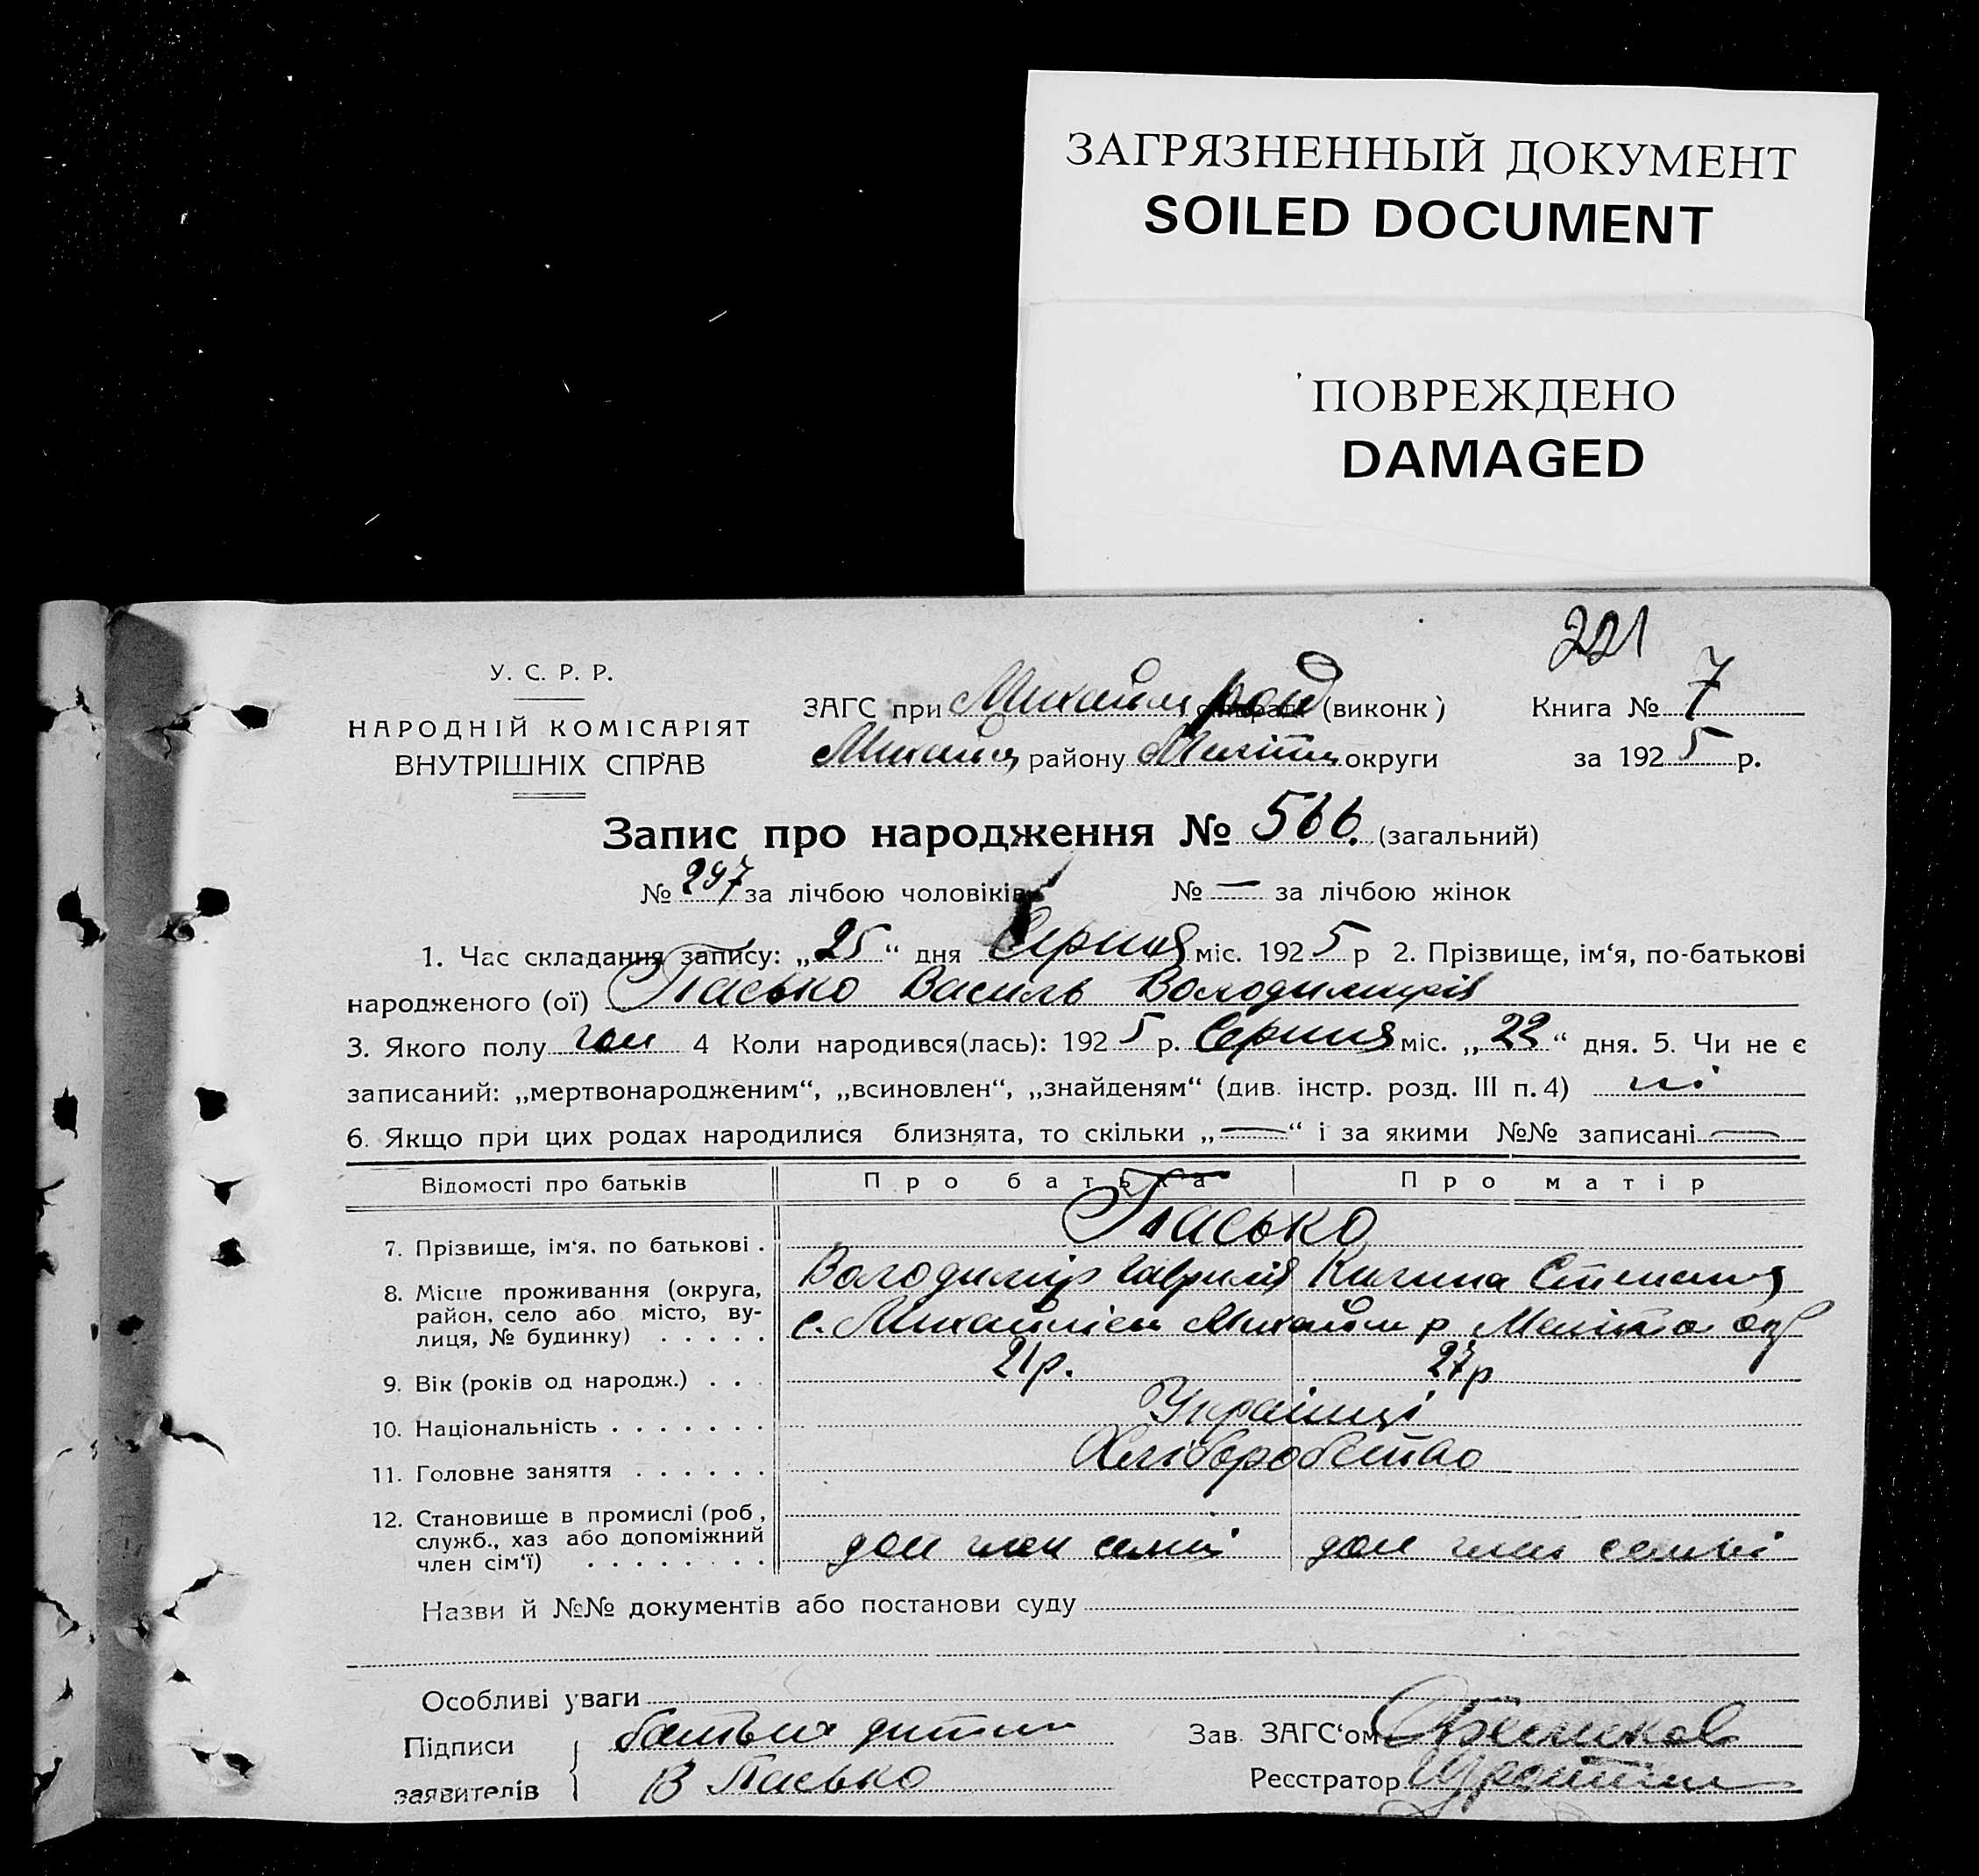 ЗАГРЯЗНЕННЫЙ ДОКУМЕНТ
SOILED DOCUMENT
ПОВРЕЖДЕНО
DAMAGED
221
У. С. Р. Р.
НАРОДНІЙ КОМІСАРІЯТ
ВНУТРІШНІХ СПРАВ
ЗАГС при Михайл рай (виконк)
Михайл району Меліт округи
Книга № 7
за 1925 р.
Запис про народження № 566. (загальний)
№ 297 за лічбою чоловіків № — за лічбою жінок
1. Час складання запису: „25“ дня Серпня міс. 1925 р 2. Прізвище, ім‘я, по-батькові
народженого (ої) Пасько Василь Володимирів
3. Якого полу чол 4 Коли народився(лась): 1925 р. Серпня міс. „22“ дня. 5. Чи не є
записаний: „мертвонародженим“, „всиновлен“, „знайденям“ (див. інстр. розд. III п. 4) ні
6. Якщо при цих родах народилися близнята, то скільки „—“ і за якими №№ записані —
Відомості про батьків Про батька Про матір
7. Прізвище, ім‘я, по батькові . Пасько
Володимір Гаврилів Килина Степанів
8. Місце проживання (округа,
район, село або місто, ву-
лиця, № будинку) . . . . . с. Михайлівка Михайл р Меліто окр
9. Вік (років од народж.) . . . 21р. 27р
10. Національність . . . . . . . Українці
11. Головне заняття . . . . . . Хліборобство
12. Становище в промислі (роб,
служб., хаз або допоміжний
член сім‘ї) . . . . . . . . . доп член семьі доп член семьі
Назви й №№ документів або постанови суду
Особливі уваги
Підписи батько дитини
заявителів В Пасько
Зав. ЗАГС‘ом
Реєстратор